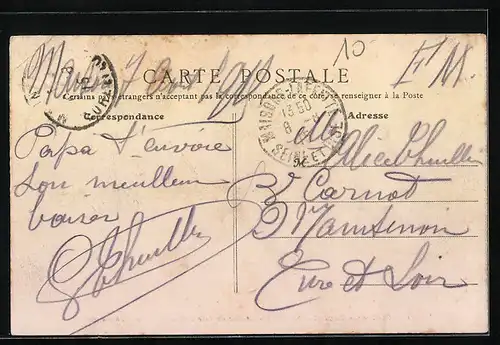 10
F M
CARTE POSTALE
Certains pays étrangers n'acceptant pas la correspondance de ce côté, se renseigner à la Poste
Correspondance
Adresse
Papa t'envoie
son meilleur
baiser
MAISONS-LAFFITTE
13 50
8 - 8
SEINE-ET-OISE
Mlle
Alice
Bd Carnot
Maintenon
Eure et Loir